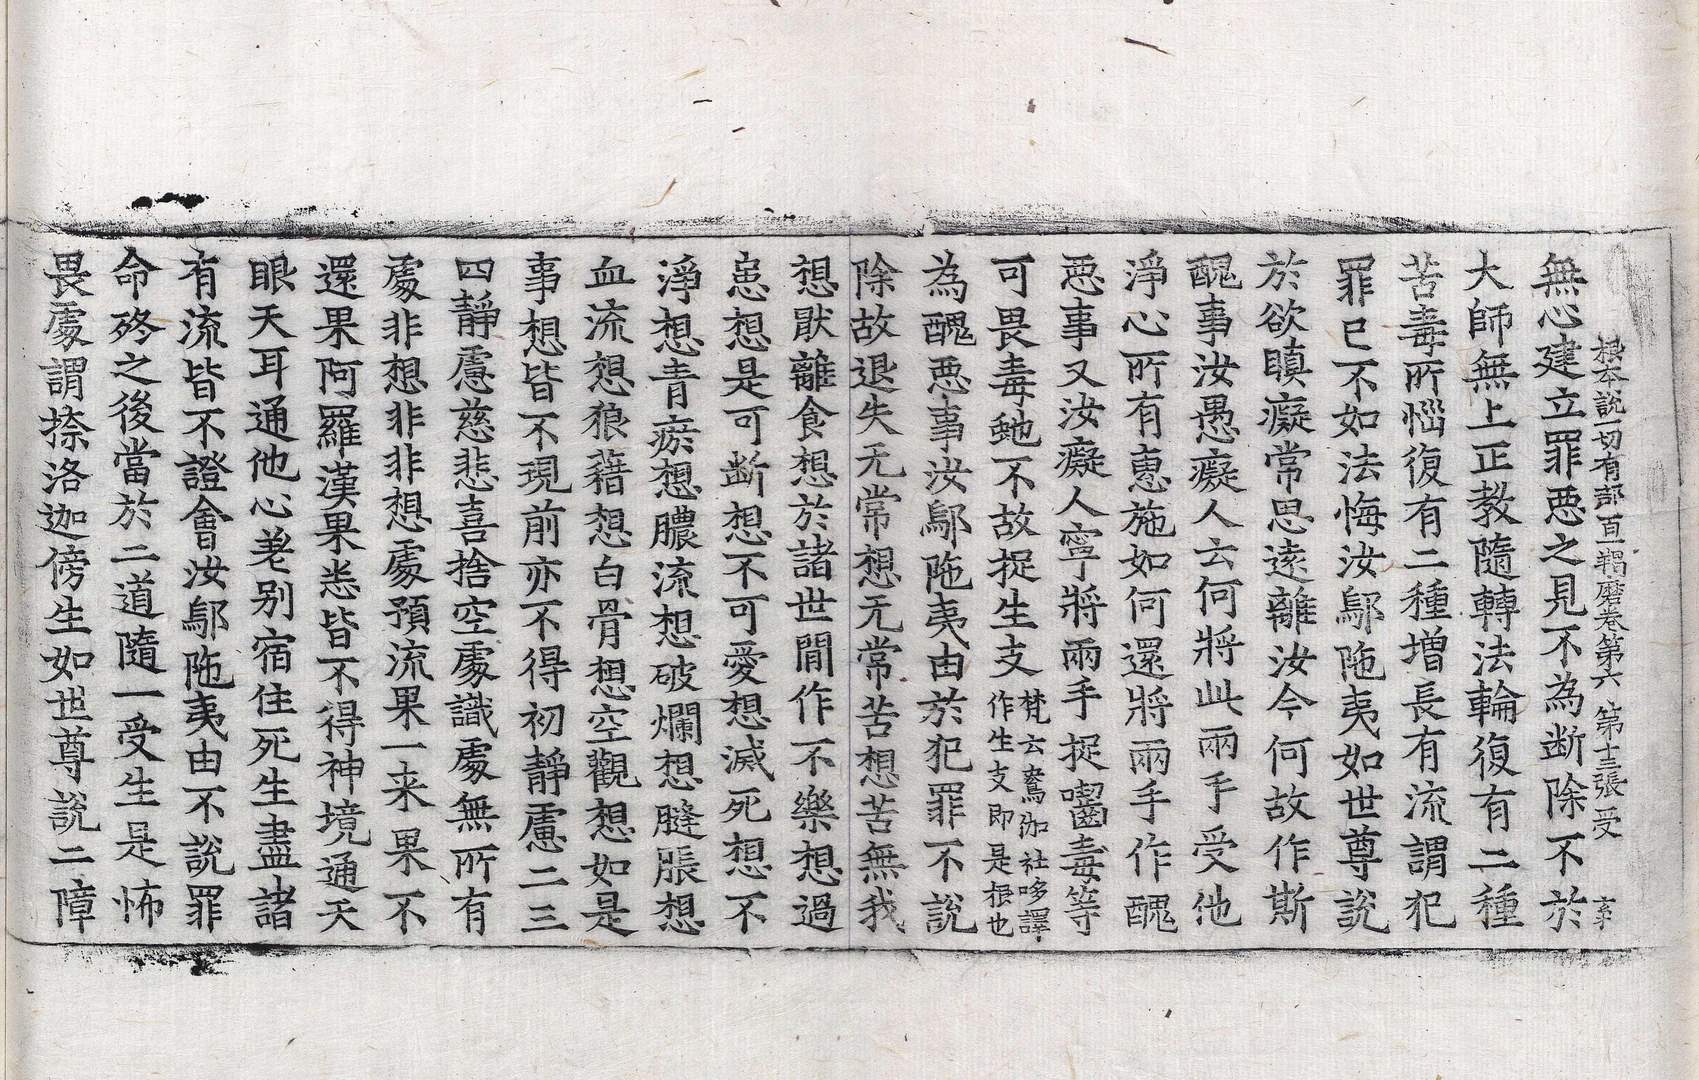 根本說一切有部百一羯磨卷第六 第十三張 受
無心建立罪惡之見不為断除不於
大師無上正教隨轉法輪復有二種
苦毒所惱復有二種增長有流謂犯
罪已不如法悔汝鄔陁夷如世尊說
於欲瞋癡常思遠離汝今何故作斯
醜事汝愚癡人云何將此兩手受他
淨心所有惠施如何還將兩手作醜
惡事又汝癡人寧將兩手捉囓毒等
可畏毒虵不故捉生支梵云鴦伽社哆譯作生支即是根也
為醜惡事汝鄔陁夷由於犯罪不說
除故退失无常想无常苦想苦無我
想猒離食想於諸世間作不樂想過
患想是可断想不可愛想滅死想不
淨想青瘀想膿流想破爛想膖脹想
血流想狼藉想白骨想空觀想如是
事想皆不現前亦不得初靜慮二三
四靜慮慈悲喜捨空處識處無所有
處非想非非想處預流果一来果不
還果阿羅漢果悉皆不得神境通天
眼天耳通他心差别宿住死生盡諸
有流皆不證會汝鄔陁夷由不說罪
命終之後當於二道隨一受生是怖
畏處謂捺洛迦傍生如世尊說二障